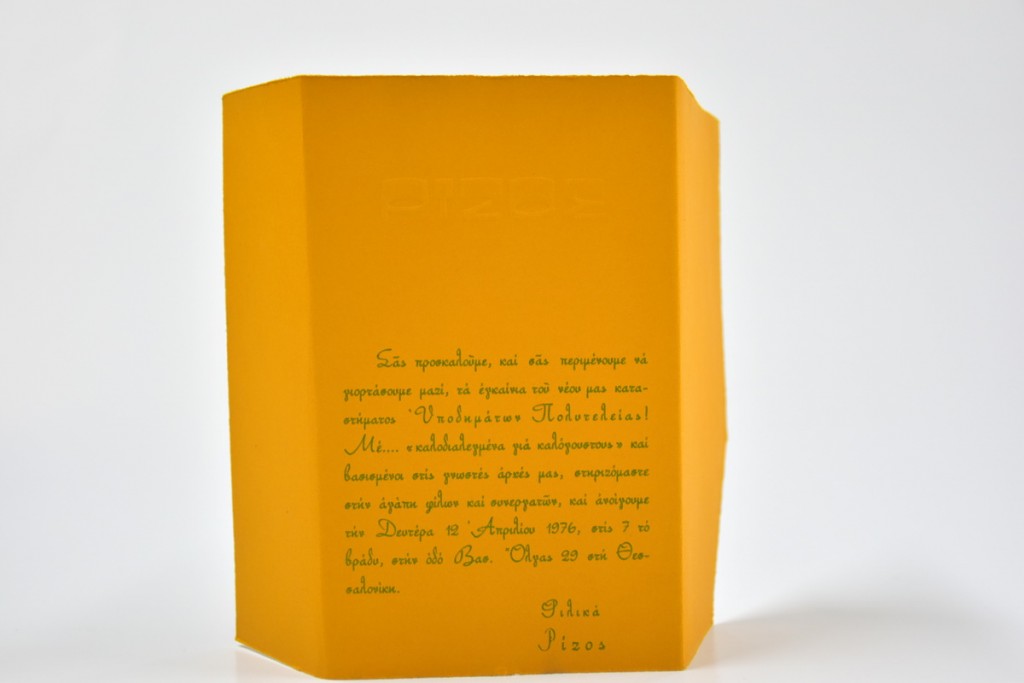 ΡΙΖΟΣ
Σᾶς προσκαλοῦμε, καί σᾶς περιμένουμε νά
γιορτάσουμε μαζί, τά ἐγκαίνια τοῦ νέου μας κατα-
στήματος Ὑποδημάτων Πολυτελείας!
Μέ.... «καλοδιαλεγμένα γιά καλόγουστους» καί
βασισμένοι στίς γνωστές ἀρχές μας, στηριζόμαστε
στήν ἀγάπη φίλων καί συνεργατῶν, καί ἀνοίγουμε
τήν Δευτέρα 12 Ἀπριλίου 1976, στίς 7 τό
βράδυ, στήν ὁδό Βασ. Ὄλγας 29 στή Θεσ-
σαλονίκη.
Φιλικά
Ρίζος